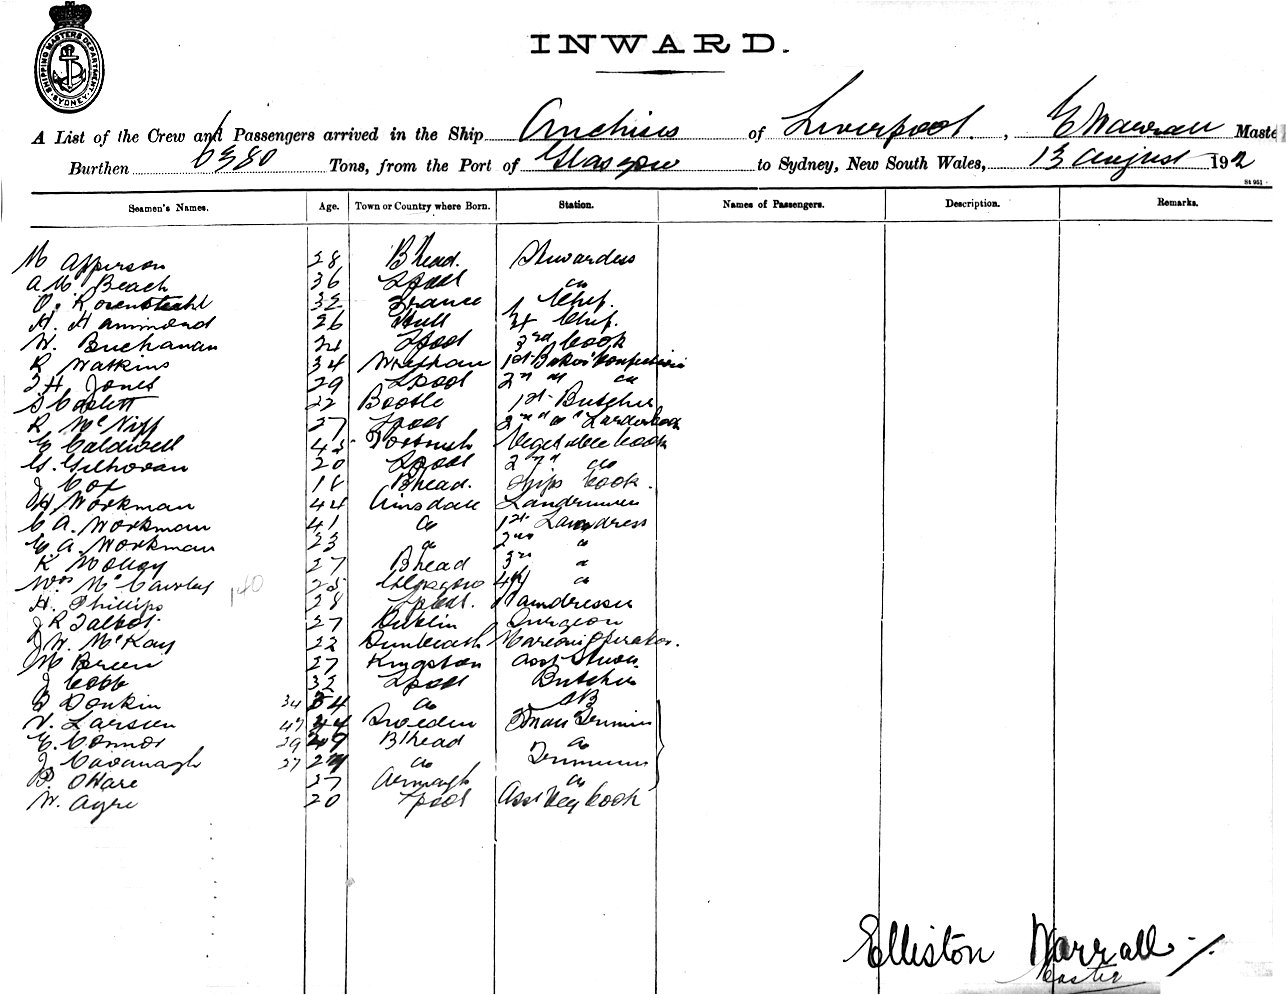 SHIPPING MASTERS DEPARTMENT SYDNEY
INWARD.
A List of the Crew and Passengers arrived in the Ship Anchises of Liverpool, E Warrall Maste
Burthen 6380 Tons, from the Port of Glasgow to Sydney, New South Wales, 13 August 192
St 951
Seamen's Names. Age. Town or Country where Born. Station. Names of Passengers. Description. Remarks.
M Apperson 28 Bhead. Stewardess
A M Beach 36 Lpool do
O. Rosenstrahl 32 France 1 Chef.
H. Hammond 26 Hull Chef.
W. Buchanan 24 Lpool 3rd Cook
R Watkins 34 Wrexham 1st Baker
J H Jones 29 Lpool 2nd do
S Caslett 22 Bootle 1st Butcher
R McNiff 27 Lpool 2nd do Larder Cook
E Caldwell 45 Vegetable Cook
G. Gilhovan 20 Lpool 2nd do
J Cox 18 Bhead. Ships Cook.
H Workman 44 Ainsdale
C A. Workman 41 do 1st Laundress
E A. Workman 23 do 2nd do
K Molloy 27 Bhead 3rd do
Wm McCawley 140 25 Glasgow 4th do
H. Phillips 28 Lpool.
J R Talbot. 27 Dublin Surgeon
J W. McKay 22 Marconi Operator.
M Breen 27 Kingston Asst Stew.
J Cobb 32 Lpool Butcher
B Donkin 34 34 do AB
V. Larsen 47 44 Sweden
E Connor 29 29 Bhead do
J Cavanagh 27 27 do
P. OHare 27 Armagh do
W. Ayre 20 Lpool Asst Veg Cook
Elliston Warrall
Master